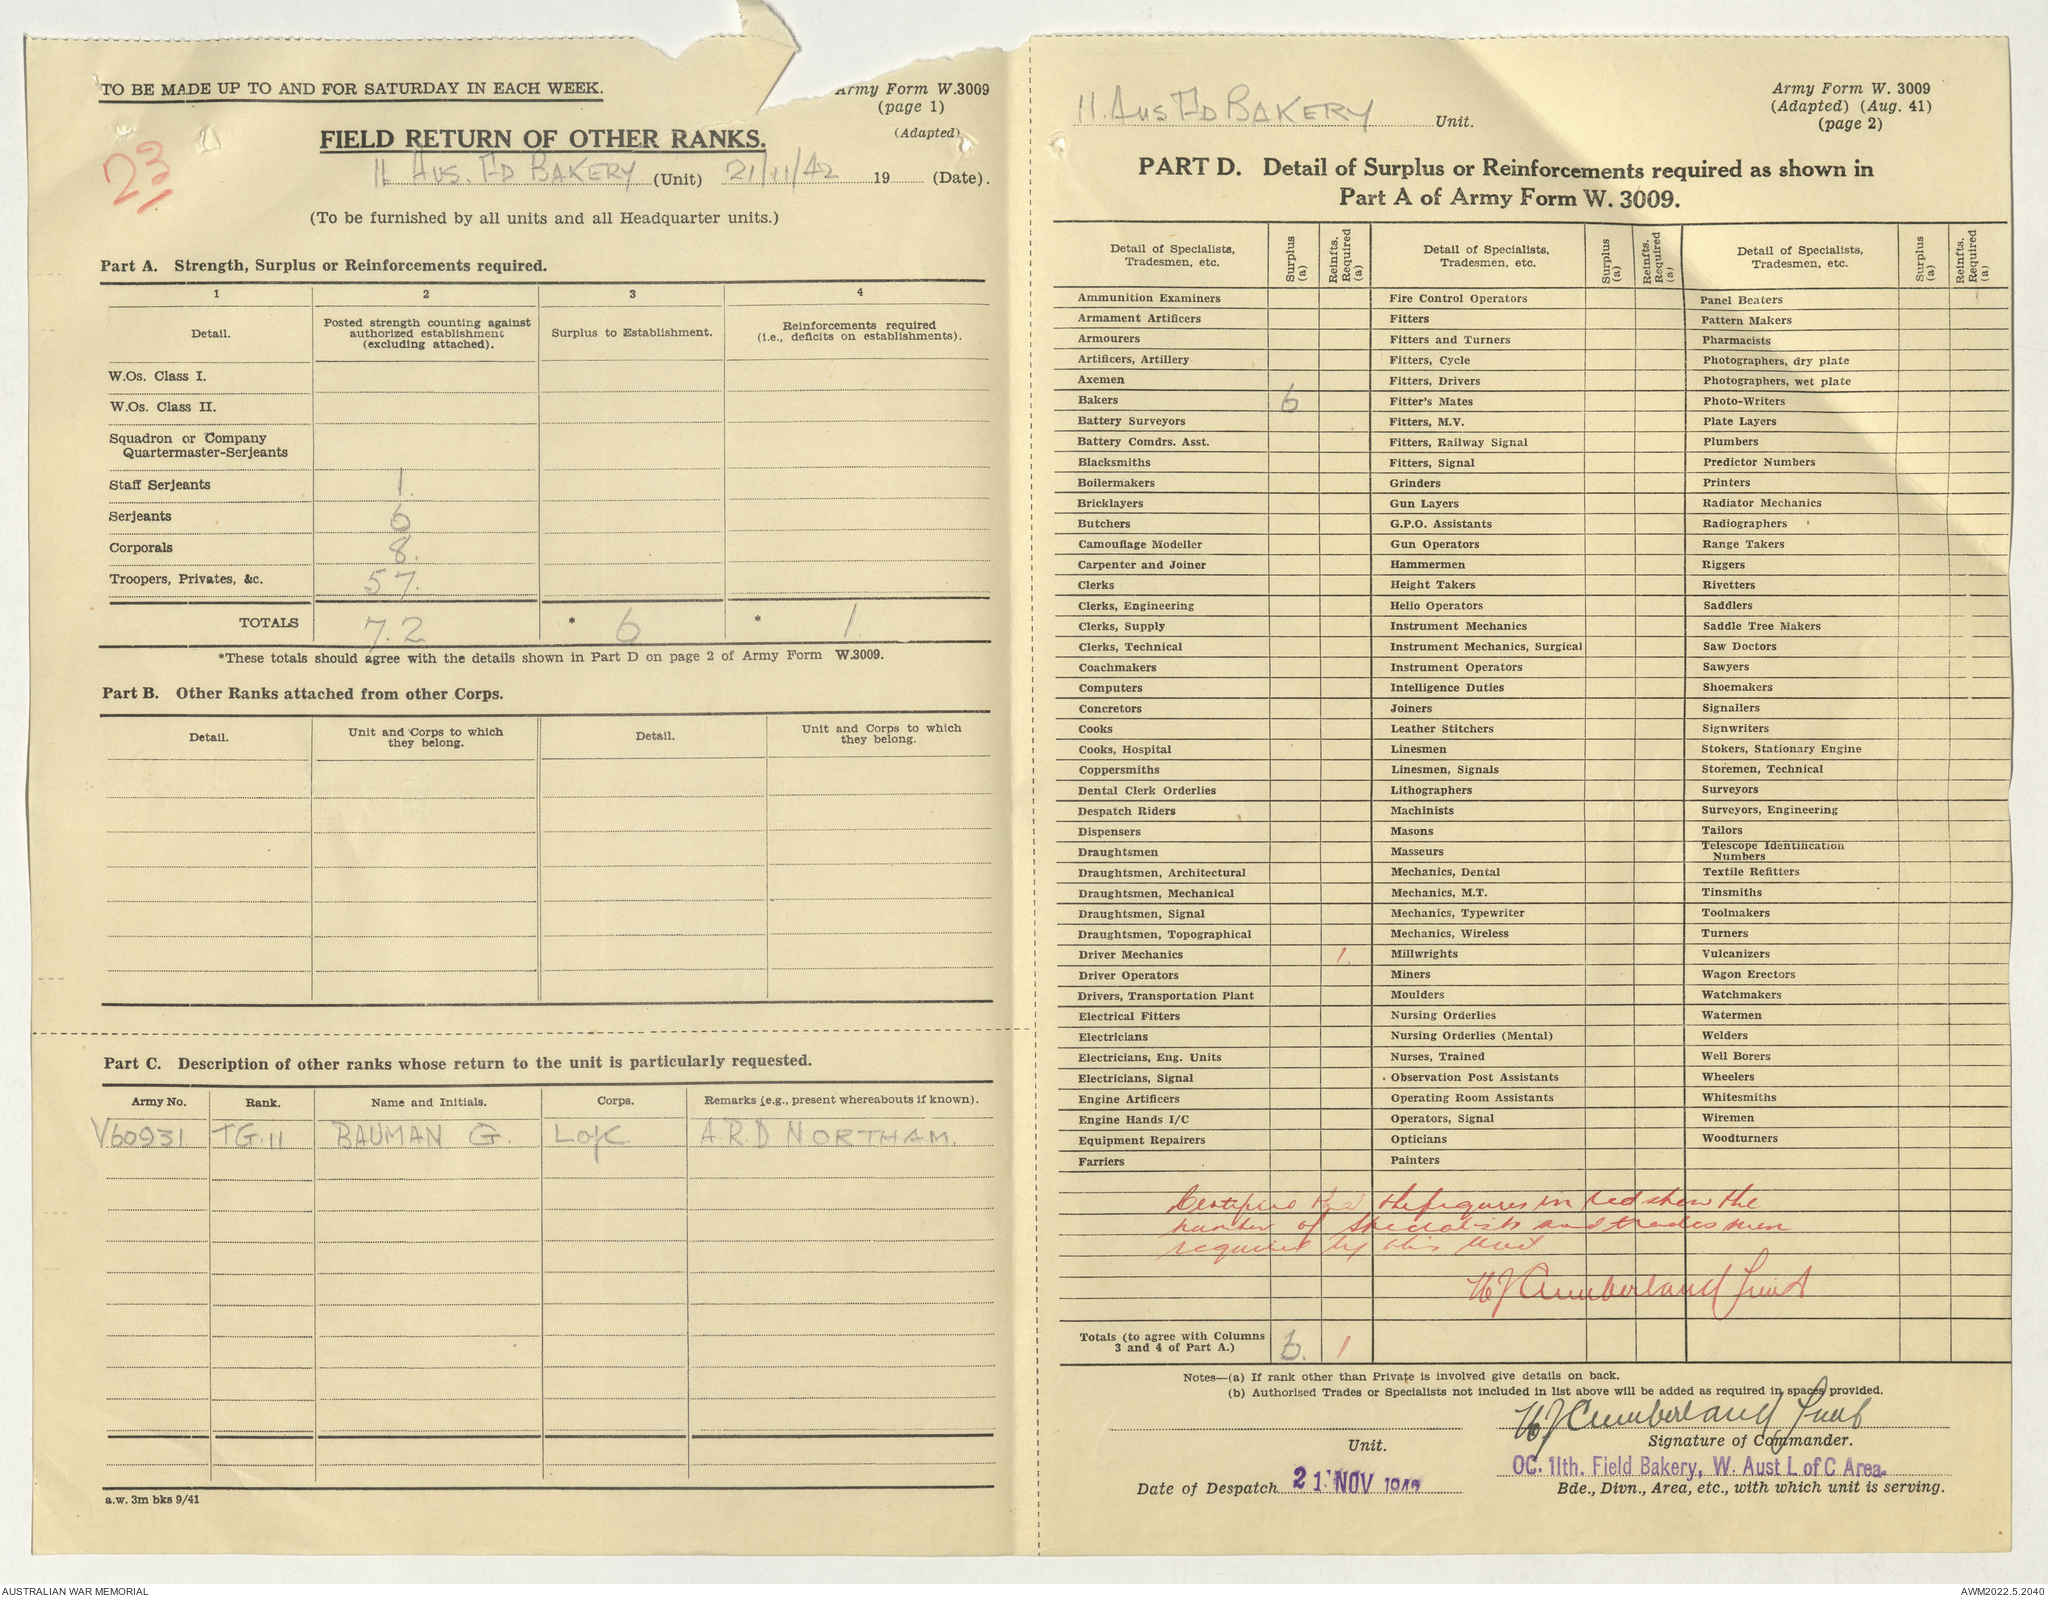 TO BE MADE UP TO AND FOR SATURDAY IN EACH WEEK.
Army Form W.3009
(page 1)
(Adapted)
FIELD RETURN OF OTHER RANKS.
23
11 AUS. FD BAKERY (Unit) 21/11/42 19 (Date).
(To be furnished by all units and all Headquarter units.)
Part A. Strength, Surplus or Reinforcements required.
1 2 3 4
Detail. Posted strength counting against authorized establishment (excluding attached). Surplus to Establishment. Reinforcements required (i.e., deficits on establishments).
W.Os. Class I.
W.Os. Class II.
Squadron or Company
Quartermaster-Serjeants
Staff Serjeants 1.
Serjeants 6
Corporals 8.
Troopers, Privates, &c. 57.
TOTALS 72 * 6 * 1.
*These totals should agree with the details shown in Part D on page 2 of Army Form W.3009.
Part B. Other Ranks attached from other Corps.
Detail. Unit and Corps to which they belong. Detail. Unit and Corps to which they belong.
Part C. Description of other ranks whose return to the unit is particularly requested.
Army No. Rank. Name and Initials. Corps. Remarks (e.g., present whereabouts if known).
V60931 TG.II BAUMAN G. LofC A.R.D NORTHAM.
a.w. 3m bks 9/41
11. AUS FD BAKERY Unit.
Army Form W. 3009
(Adapted) (Aug. 41)
(page 2)
PART D. Detail of Surplus or Reinforcements required as shown in
Part A of Army Form W. 3009.
Detail of Specialists, Tradesmen, etc. Surplus (a) Reinfts. Required (a) Detail of Specialists, Tradesmen, etc. Surplus (a) Reinfts. Required (a) Detail of Specialists, Tradesmen, etc. Surplus (a) Reinfts. Required (a)
Ammunition Examiners Fire Control Operators Panel Beaters
Armament Artificers Fitters Pattern Makers
Armourers Fitters and Turners Pharmacists
Artificers, Artillery Fitters, Cycle Photographers, dry plate
Axemen Fitters, Drivers Photographers, wet plate
Bakers 6 Fitter's Mates Photo-Writers
Battery Surveyors Fitters, M.V. Plate Layers
Battery Comdrs. Asst. Fitters, Railway Signal Plumbers
Blacksmiths Fitters, Signal Predictor Numbers
Boilermakers Grinders Printers
Bricklayers Gun Layers Radiator Mechanics
Butchers G.P.O. Assistants Radiographers
Camouflage Modeller Gun Operators Range Takers
Carpenter and Joiner Hammermen Riggers
Clerks Height Takers Rivetters
Clerks, Engineering Helio Operators Saddlers
Clerks, Supply Instrument Mechanics Saddle Tree Makers
Clerks, Technical Instrument Mechanics, Surgical Saw Doctors
Coachmakers Instrument Operators Sawyers
Computers Intelligence Duties Shoemakers
Concretors Joiners Signallers
Cooks Leather Stitchers Signwriters
Cooks, Hospital Linesmen Stokers, Stationary Engine
Coppersmiths Linesmen, Signals Storemen, Technical
Dental Clerk Orderlies Lithographers Surveyors
Despatch Riders Machinists Surveyors, Engineering
Dispensers Masons Tailors
Draughtsmen Masseurs Telescope Identification Numbers
Draughtsmen, Architectural Mechanics, Dental Textile Refitters
Draughtsmen, Mechanical Mechanics, M.T. Tinsmiths
Draughtsmen, Signal Mechanics, Typewriter Toolmakers
Draughtsmen, Topographical Mechanics, Wireless Turners
Driver Mechanics 1. Millwrights Vulcanizers
Driver Operators Miners Wagon Erectors
Drivers, Transportation Plant Moulders Watchmakers
Electrical Fitters Nursing Orderlies Watermen
Electricians Nursing Orderlies (Mental) Welders
Electricians, Eng. Units Nurses, Trained Well Borers
Electricians, Signal Observation Post Assistants Wheelers
Engine Artificers Operating Room Assistants Whitesmiths
Engine Hands I/C Operators, Signal Wiremen
Equipment Repairers Opticians Woodturners
Farriers Painters
Certified that the figures in red show the
number of specialists and tradesmen
required by this Unit
WJ Cumberland Lieut
Totals (to agree with Columns 3 and 4 of Part A.) 6. 1
Notes—(a) If rank other than Private is involved give details on back.
(b) Authorised Trades or Specialists not included in list above will be added as required in spaces provided.
WJ Cumberland Lieut
Unit. Signature of Commander.
OC. 11th. Field Bakery, W. Aust L of C Area.
Date of Despatch 21 NOV 1942 Bde., Divn., Area, etc., with which unit is serving.
AUSTRALIAN WAR MEMORIAL AWM2022.5.2040